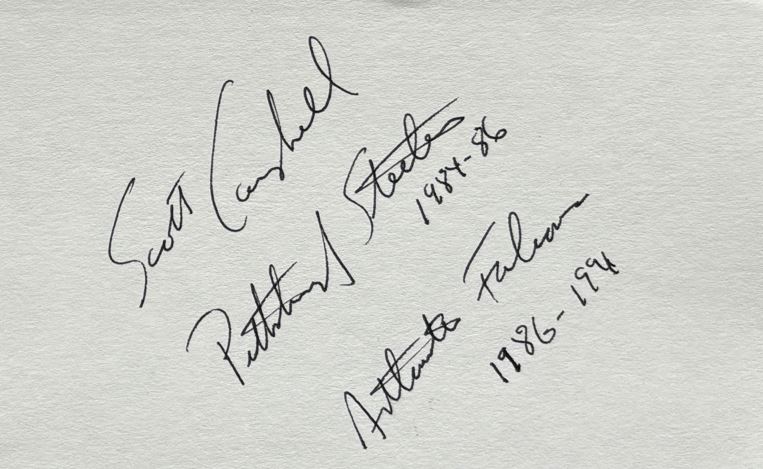 Scott Campbell
Pittsburgh Steelers
1984-86
Atlanta Falcons
1986-1991